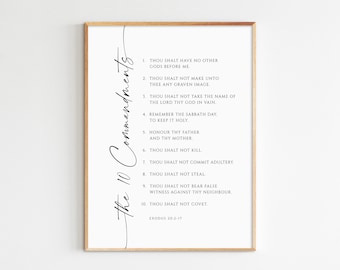 the 10 Commandments
1. THOU SHALT HAVE NO OTHER
GODS BEFORE ME.
2. THOU SHALT NOT MAKE UNTO
THEE ANY GRAVEN IMAGE.
3. THOU SHALT NOT TAKE THE NAME OF
THE LORD THY GOD IN VAIN.
4. REMEMBER THE SABBATH DAY
TO KEEP IT HOLY.
5. HONOUR THY FATHER
AND THY MOTHER.
6. THOU SHALT NOT KILL.
7. THOU SHALT NOT COMMIT ADULTERY.
8. THOU SHALT NOT STEAL.
9. THOU SHALT NOT BEAR FALSE
WITNESS AGAINST THY NEIGHBOUR.
10. THOU SHALT NOT COVET.
EXODUS 20:3-17